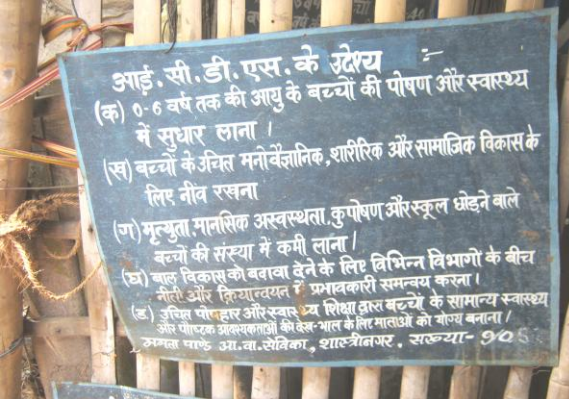 आई. सी. डी. एस. के उदेश्य :-
(क) 0-6 वर्ष तक की आयु के बच्चों की पोषण और स्वास्थ्य
में सुधार लाना ।
(ख) बच्चों के उचित मनोवैज्ञानिक, शारीरिक और सामाजिक विकास के
लिए नीव रखना
(ग) मृत्युता, मानसिक अस्वस्थता, कुपोषण और स्कूल छोड़ने वाले
बच्चों की संख्या में कमी लाना ।
(घ) बाल विकास को बढावा देने के लिए विभिन्न विभागों के बीच
नीती और क्रियान्वयन में प्रभावकारी समन्वय करना ।
(ड.) उचित पोषहार और स्वास्थ्य शिक्षा द्वारा बच्चों के सामान्य स्वास्थ्य
और पौष्टिक आवश्यकताओं की देख-भाल के लिए माताओं को योग्य बनाना ।
ममता पाण्डे आ.वा.सेविका, शास्त्रीनगर, सख्या-